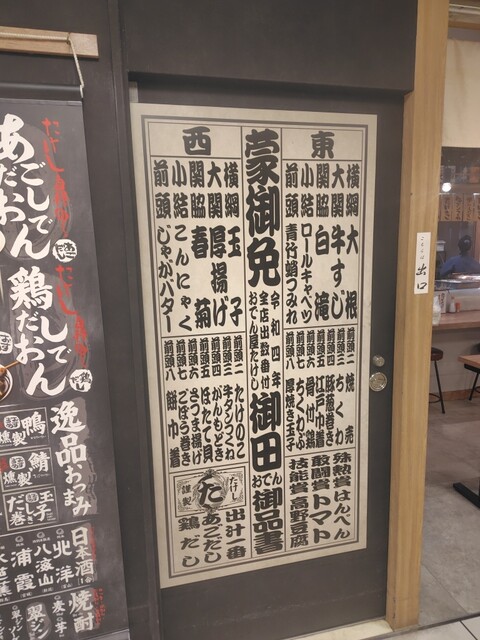 東
横綱 大根
大関 牛すじ
関脇 白滝
小結 ロールキャベツ
前頭 青竹蛸つみれ
前頭二 焼売
前頭三 ちくわ
前頭四 豚葱巻き
前頭五 江戸巾着
前頭六 骨付け鶏
前頭七 ちくわぶ
前頭八 厚焼き玉子
殊勲賞 はんぺん
敢闘賞 トマト
技能賞 高野豆腐
蒙御免
令和四年
全店出数番付
おでん屋たけし
御田
おでん
御品書
西
横綱 玉子
大関 厚揚げ
関脇 春菊
小結 こんにゃく
前頭 じゃがバター
前頭二 たけのこ
前頭三 牛タンつくね
前頭四 がんもどき
前頭五 ほたて貝
前頭六 さつま揚げ
前頭七 ごぼう巻き
前頭八 餅巾着
出汁一番
あごだし
鶏だし
たけし
た
謹製
出口
あごだしおでん
鶏だしおでん
逸品おつまみ
燻製 鴨
燻製 鯖
だし巻 玉子
日本酒
北洋
八海山
浦霞
焼酎